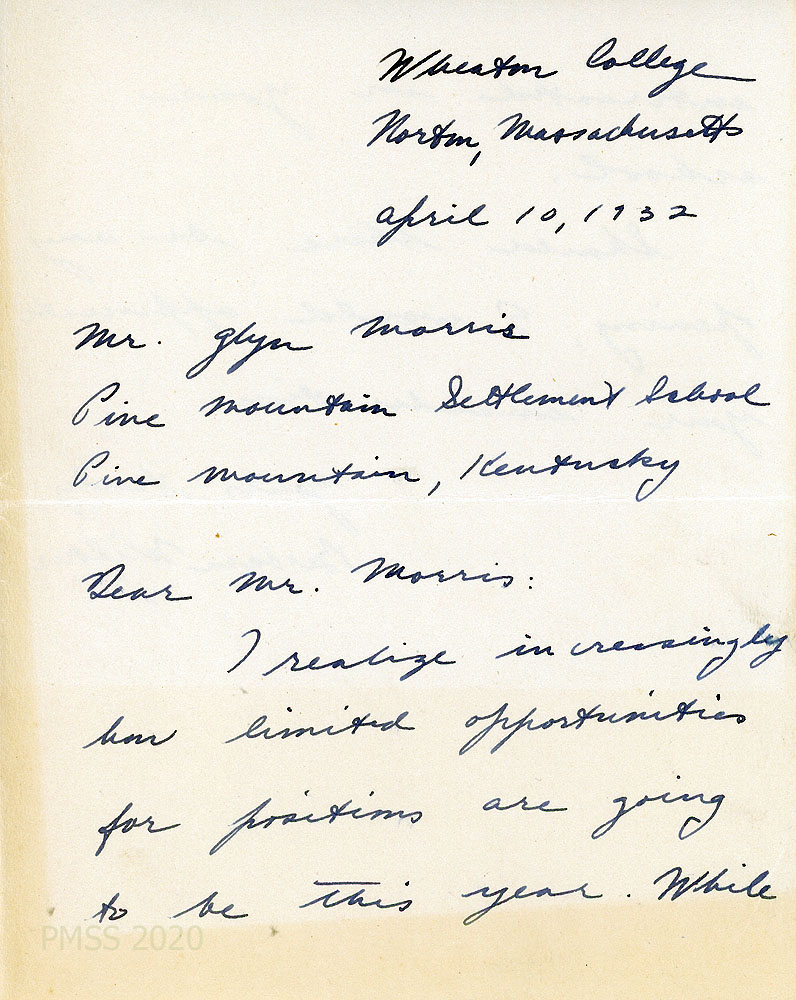 Wheaton College
Norton, Massachusetts
April 10, 1932
Mr. Glyn Morris
Pine Mountain Settlement School
Pine Mountain, Kentucky
Dear Mr. Morris:
I realize increasingly
how limited opportunities
for positions are going
to be this year. While
PMSS 2020